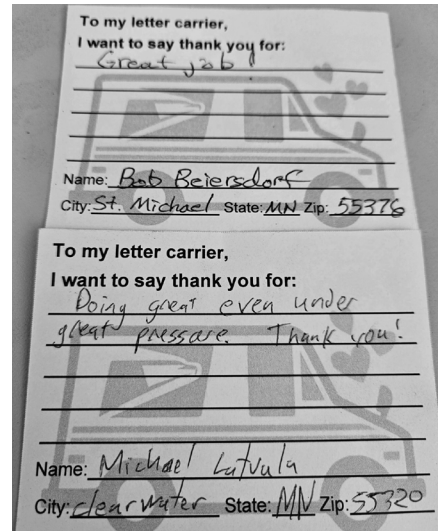 To my letter carrier,
I want to say thank you for:
Great job!
Name: Bob Beiersdorf
City: St. Michael State: MN Zip: 55376
To my letter carrier,
I want to say thank you for:
Doing great even under
great pressure. Thank you!
Name: Michael Latvala
City: clearwater State: MN Zip: 55320